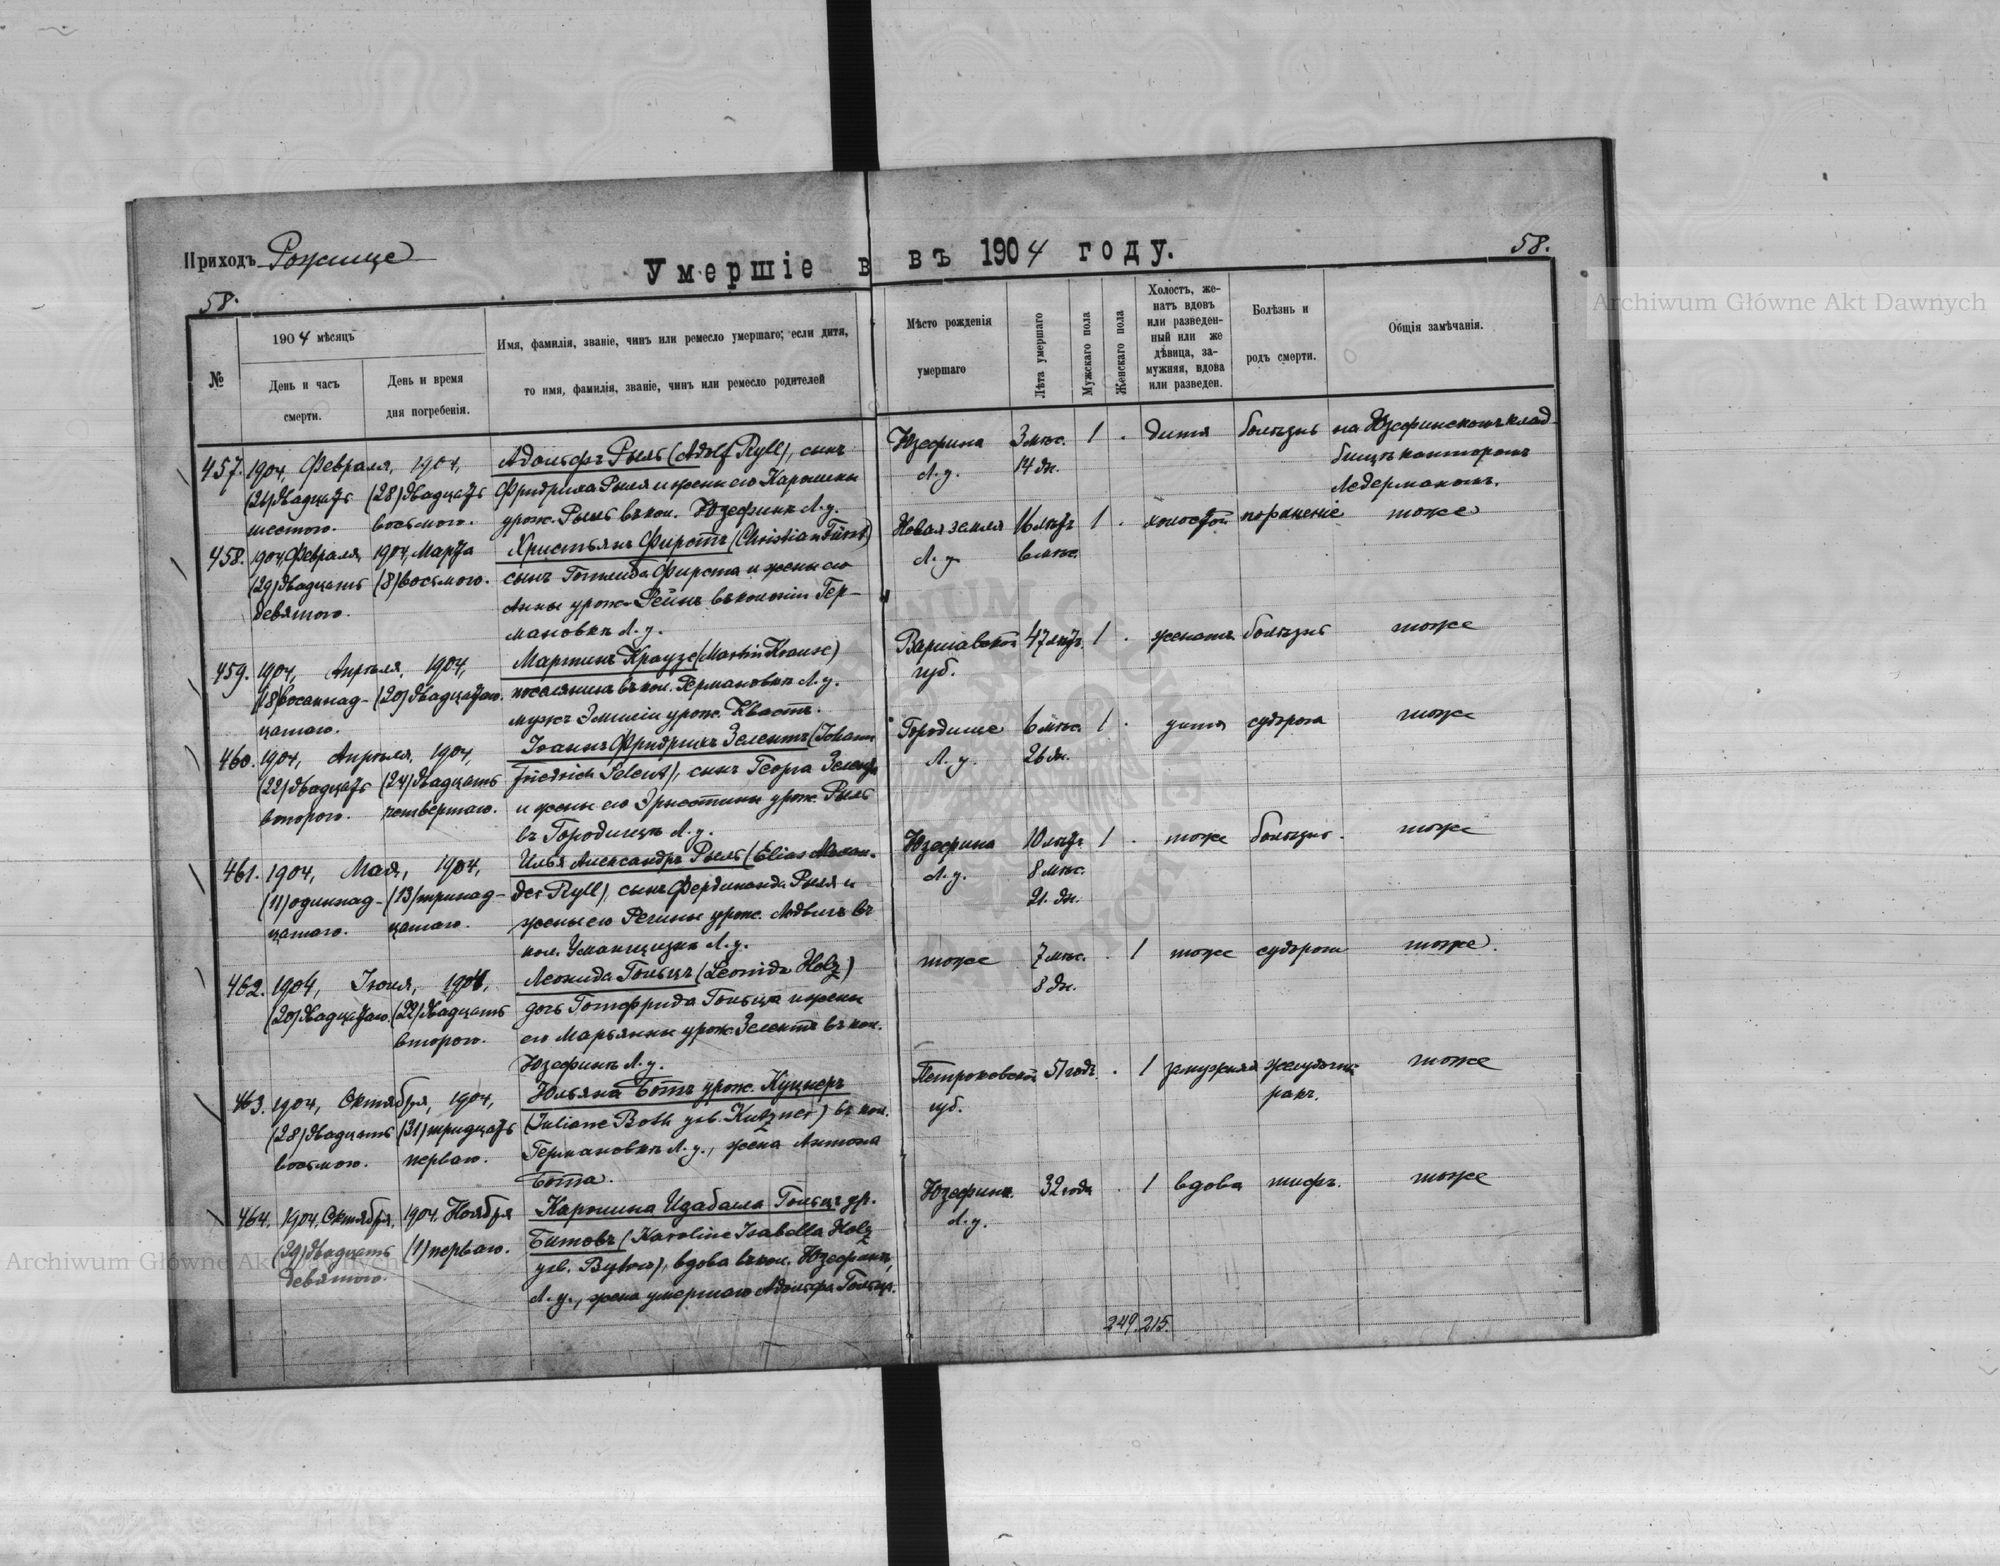 Приходъ Рожище
Умершіе въ 1904 году.
58.
58.
№
1904 мѣсяцъ
День и часъ
смерти.
День и время
дня погребенія.
Имя, фамилія, званіе, чинъ или ремесло умершаго; если дитя,
то имя, фамилія, званіе, чинъ или ремесло родителей
Мѣсто рожденія
умершаго
Лѣта умершаго
Мужскаго пола
Женскаго пола
Холостъ, же-
натъ вдовъ
или разведен-
ный или же
дѣвица, за-
мужняя, вдова
или разведен.
Болѣзнь и
родъ смерти.
Общія замѣчанія.
457. 1904, Февраля, 1904, Адольфъ Рыль (Adolf Ryll), сынъ Юзефина 3 мѣс. 1 . дитя болѣзнь на Юзефинскомъ клад-
(26) двадцать (28) двадцать Фридриха Рыля и жены его Каролины Л. у. 14 дн. бищѣ канторомъ
шестого. восьмого. урож. Рыль въ кол. Юзефинѣ Л. у. Ледерманомъ.
458. 1904, Февраля 1904, Марта Христьянъ Фирстъ (Christian Fürst) Новая земля 16 лѣтъ 1 . холостой пораненіе тоже
(29) двадцать (8) восьмого. сынъ Готлиба Фирста и жены его Л. у. 6 мѣс.
девятого. Анны урож. Рейнъ въ колоніи Гер-
мановкѣ Л. у.
459. 1904, Апрѣля, 1904, Мартинъ Краузе (Martin Krause) Варшавской 47 лѣтъ 1 . женатъ болѣзнь тоже
(18) восемнад- (20) двадцатого. поселянинъ въ кол. Германовкѣ Л. у. губ.
цатаго. мужъ Эмиліи урож. Квастъ.
460. 1904, Апрѣля, 1904, Іоаннъ Фридрихъ Зелентъ (Johann Городище 6 мѣс. 1 . дитя судорога тоже
(22) двадцать (24) двадцать Friedrich Selent), сынъ Георга Зелента Л. у. 26 дн.
второго. четвертаго. и жены его Эрнстины урож. Рыль
въ Городищѣ Л. у.
461. 1904, Мая, 1904, Илья Александръ Рыль (Elias Alexan- Юзефина 10 лѣтъ 1 . тоже болѣзнь. тоже
(11) одиннад- (13) тринад- der Ryll), сынъ Фердинанда Рыля и Л. у. 8 мѣс.
цатаго. цатаго. жены его Регины урож. Людвигъ въ 21. дн.
кол. Л. у.
462. 1904, Іюня, 1904, Леонида Гольцъ (Leonida Holz) тоже 7 мѣс. . 1 тоже судорога тоже.
(20) двадцатаго. (22) двадцать дочь Готфрида Гольца и жены 8 дн.
второго. его Марьянны урож. Зелентъ въ кол.
Юзефинѣ Л. у.
463. 1904, Октября, 1904, Юльяна Ботъ урож. Куцнеръ Петроковской 51 годъ. . 1 замужняя желудочн. тоже
(28) двадцать (31) тридцать (Juliane Both geb. Kutzner) въ кол. губ. ракъ.
восьмого. перваго. Германовкѣ Л. у., жена Антона
Бота.
464. 1904, Октября, 1904. Ноября Каролина Изабелла Гольцъ ур. Юзефина 32 года . 1 вдова тифъ. тоже
(29) двадцать (1) перваго. Битовъ (Karoline Isabella Holz Л. у.
девятого. geb. Bytow), вдова въ кол. Юзефинѣ,
Л. у., жена умершаго Адольфа Гольца.
249. 215.
Archiwum Główne Akt Dawnych
Archiwum Główne Akt Dawnych